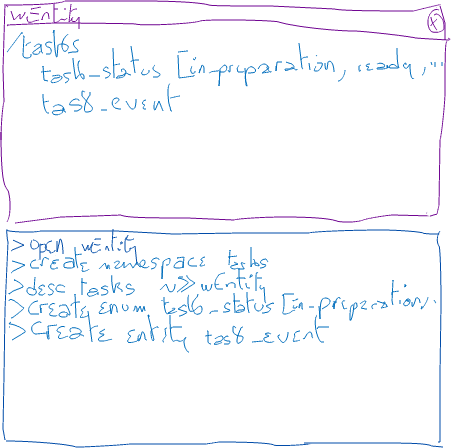 wEntity (x)
/tasks
task_status [in_preparation, ready, ...
task_event
> open wEntity
> create namespace tasks
> desc tasks v>> wEntity
> create enum task_status [in_preparation,.
> create entity task_event